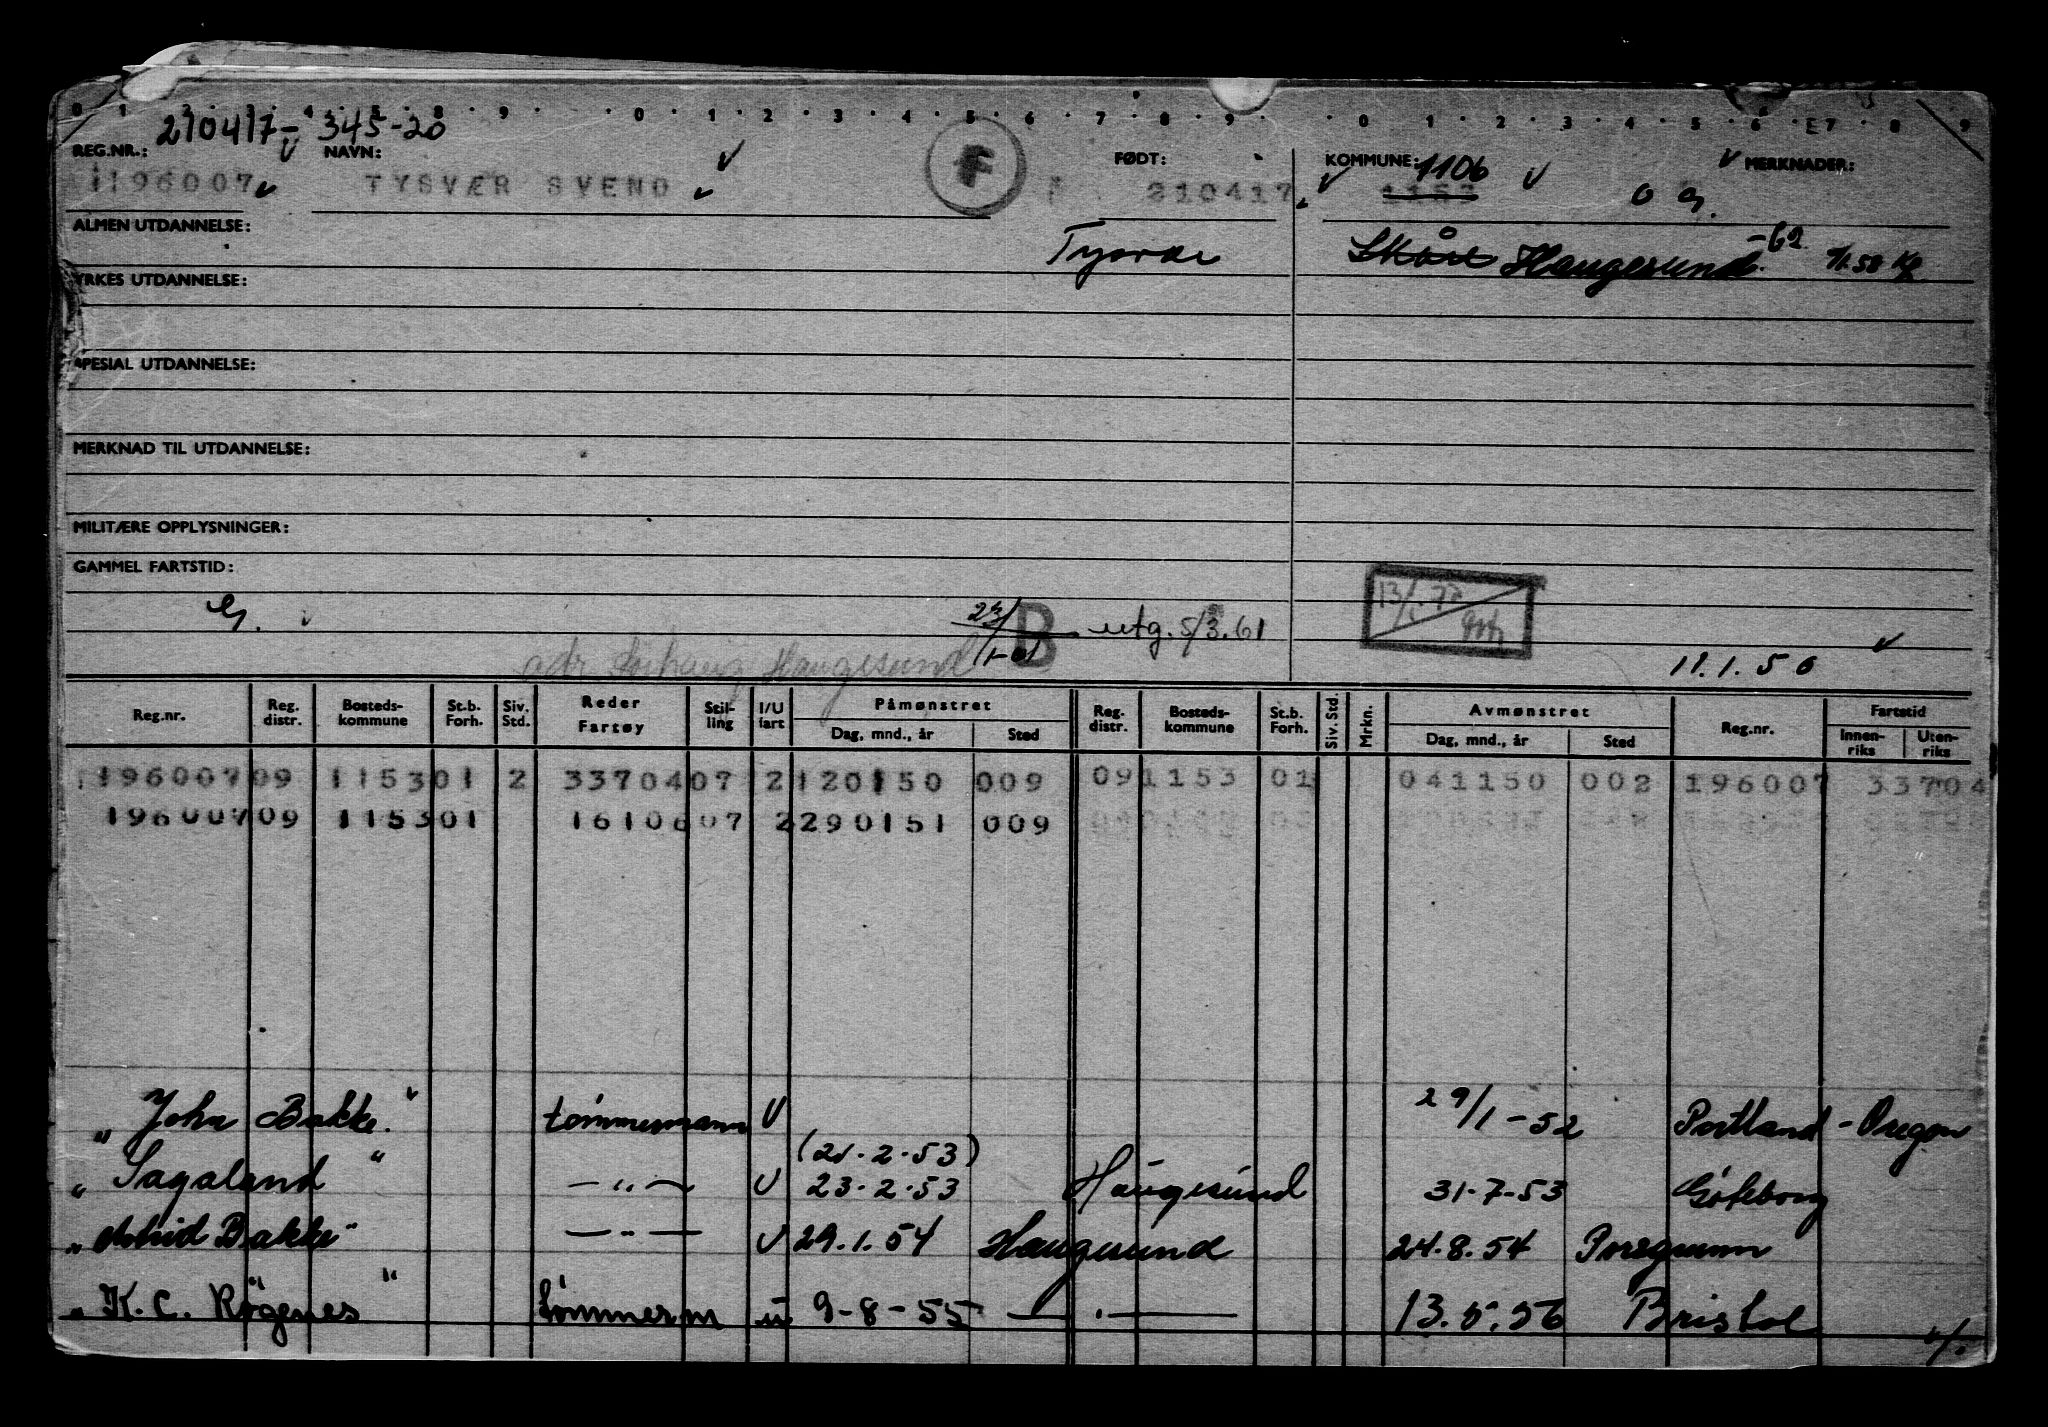 0 1 2 3 4 5 8 9 0 1 2 3 4 5 6 7 8 9 0 1 2 3 4 5 6 E7 8 9
210417-345-20
REG.NR.: NAVN: F FØDT: KOMMUNE: 1106 MERKNADER:
1196007 TYSVÆR SVEND 210417 1153 0 G.
ALMEN UTDANNELSE: Tysvær Skåre Haugesund -62 
YRKES UTDANNELSE:
SPESIAL UTDANNELSE:
MERKNAD TIL UTDANNELSE:
MILITÆRE OPPLYSNINGER:
GAMMEL FARTSTID:
G. 23/1-61 B utg. 5/3.61
adr Haugesund 11.1.50
Reg.nr. Reg. distr. Bosteds-kommune St.b. Forh. Siv. Std. Reder Fartøy Stil-ling I/U fart Påmønstret Dag, mnd., år Sted Reg. distr. Bosteds-kommune St.b. Forh. Siv. Std. Mrkn. Avmønstret Dag, mnd., år Sted Reg.nr. Fartstid Innen-riks Uten-riks
196007 09 1153 01 2 33704 07 2 120150 009 09 1153 01 041150 002 196007 33704
196007 09 1153 01 16106 07 2 290151 009
"John Bakke" tømmermann U 29/1-52 Portland - Oregon
(21.2.53)
"Sagaland" — " — U 23.2.53 Haugesund 31.7.53 Göteborg
"Astrid Bakke" — " — U 29.1.54 Haugesund 24.8.54 Porsgrunn
"K. C. Røgenes" tømmerm u 9-8-55 — " — 13.5.56 Bristol